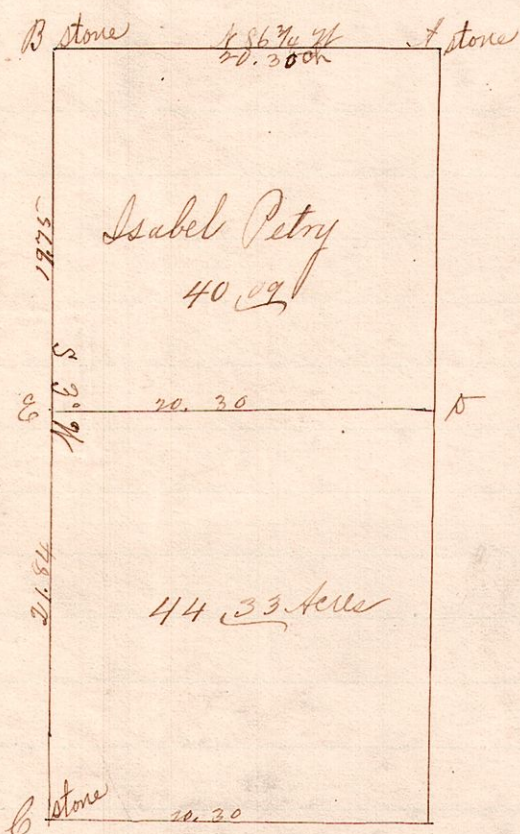 B stone
N 86 3/4 W
A stone
20.30 ch
19.75
Isabel Petry
40 09
S 3° W
E
20.30
D
21.84
44 33 Acres
stone
C
20.30